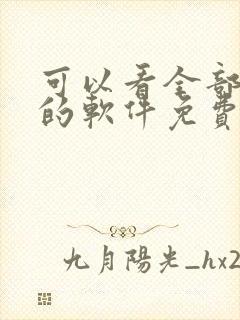 可以看全部
的軟件免費
九月陽光_hx2